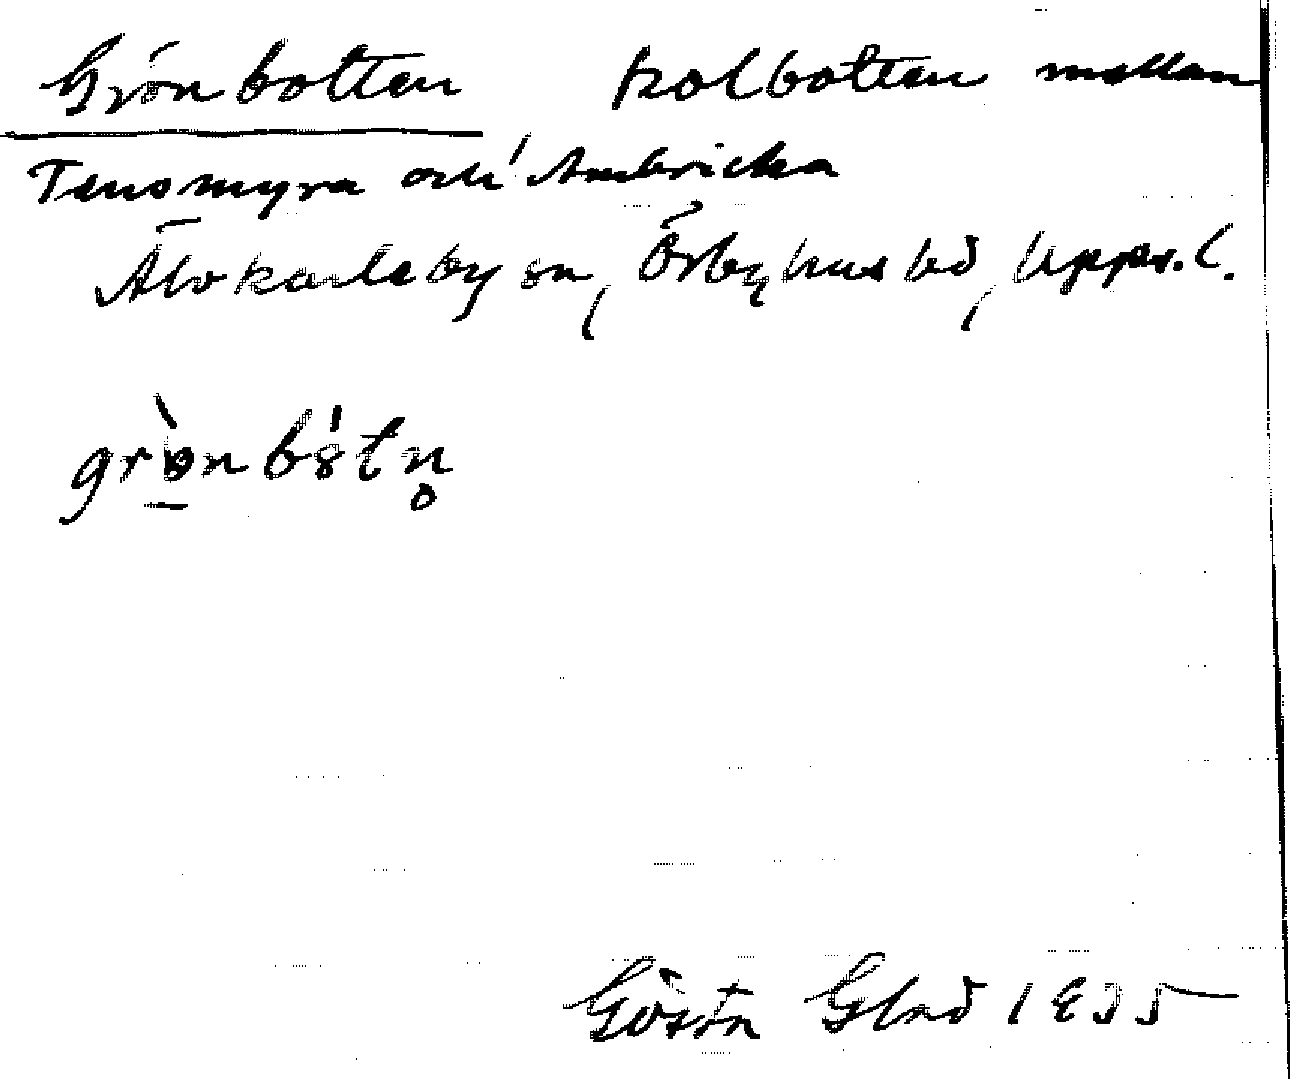 Grönbotten kolbotten mellan
Tensmyra och Ambricka
Älvkarleby sn, Örbyhus hd, Upps. l.
grö̀nbótn̥
Gösta Glad 1935